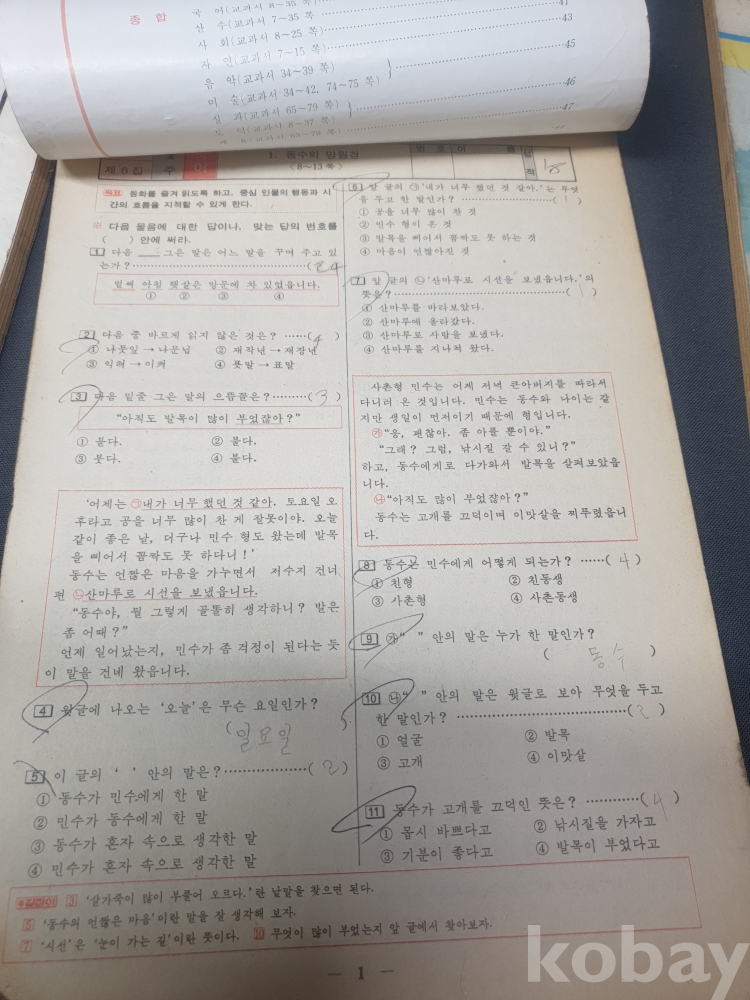 종 합
국 어(교과서 8~35 쪽)
41
산 수(교과서 7~35 쪽)
43
사 회(교과서 8~25 쪽)
자 연(교과서 7~15 쪽)
45
음 악(교과서 34~39 쪽)
미 술(교과서 34~42, 74~75 쪽)
46
실 과(교과서 65~79 쪽)
47
도 덕(교과서 8~37 쪽)
제 6 집
1. 동수의 망원경
<8~13쪽>
번 호 이 름
목표 동화를 즐겨 읽도록 하고, 중심 인물의 행동과 시
간의 흐름을 지적할 수 있게 한다.
※ 다음 물음에 대한 답이나, 맞는 답의 번호를
( ) 안에 써라.
1 다음 ___ 그은 말은 어느 말을 꾸며 주고 있
는가?
벌써 아침 햇살은 앞문에 차 있었읍니다.
① ② ③ ④
2 다음 중 바르게 읽지 않은 것은? ……(4)
① 나뭇잎→나문닙 ② 재작년→재장년
③ 익혀→이켜 ④ 푯말→표말
3 다음 밑줄 그은 말의 으뜸꼴은?………(3)
“아직도 발목이 많이 부었잖아?”
① 붇다. ② 불다.
③ 붓다. ④ 붙다.
‘어제는 ㉠내가 너무 했던 것 같아. 토요일 오
후라고 공을 너무 많이 찬 게 잘못이야. 오늘
같이 좋은 날, 더구나 민수 형도 왔는데 발목
을 삐어서 꼼짝도 못 하다니!’
동수는 언짢은 마음을 가누면서 저수지 건너
편 ㉡산마루로 시선을 보냈읍니다.
“동수야, 뭘 그렇게 골똘히 생각하니? 발은
좀 어때?”
언제 일어났는지, 민수가 좀 걱정이 된다는 듯
이 말을 건네 왔읍니다.
4 윗글에 나오는 ‘오늘’은 무슨 요일인가?
(일요일)
5 이 글의 ‘ ’ 안의 말은?………………(2)
① 동수가 민수에게 한 말
② 민수가 동수에게 한 말
③ 동수가 혼자 속으로 생각한 말
④ 민수가 혼자 속으로 생각한 말
6 앞 글의 ㉠‘내가 너무 했던 것 같아.’는 무엇
을 두고 한 말인가? ………………(1)
① 공을 너무 많이 찬 것
② 민수 형이 온 것
③ 발목을 삐어서 꼼짝도 못 하는 것
④ 마음이 언짢아진 것
7 앞 글의 ㉡‘산마루로 시선을 보냈읍니다.’의
뜻은?…………………………(1)
① 산마루를 바라보았다.
② 산마루에 올라갔다.
③ 산마루로 사람을 보냈다.
④ 산마루를 지나쳐 왔다.
사촌형 민수는 어제 저녁 큰아버지를 따라서
다니러 온 것입니다. 민수는 동수와 나이는 같
지만 생일이 먼저이기 때문에 형입니다.
㉮“응, 괜찮아. 좀 아플 뿐이야.”
“그래? 그럼, 낚시질 갈 수 있니?”
하고, 동수에게로 다가와서 발목을 살펴보았읍
니다.
㉯“아직도 많이 부었잖아?”
동수는 고개를 끄덕이며 이맛살을 찌푸렸읍니
다.
8 동수는 민수에게 어떻게 되는가? ……(4)
① 친형 ② 친동생
③ 사촌형 ④ 사촌동생
9 ㉮“ ” 안의 말은 누가 한 말인가?
( 동수 )
10 ㉯“ ” 안의 말은 윗글로 보아 무엇을 두고
한 말인가? ………………………………(2)
① 얼굴 ② 발목
③ 고개 ④ 이맛살
11 동수가 고개를 끄덕인 뜻은? …………(4)
① 몹시 바쁘다고 ② 낚시질을 가자고
③ 기분이 좋다고 ④ 발목이 부었다고
길잡이 3 ‘살가죽이 많이 부풀어 오르다.’란 낱말을 찾으면 된다.
5 ‘동수의 언짢은 마음’이란 말을 잘 생각해 보자.
7 ‘시선’은 ‘눈이 가는 길’이란 뜻이다. 10 무엇이 많이 부었는지 앞 글에서 찾아보자.
— 1 —
kobay